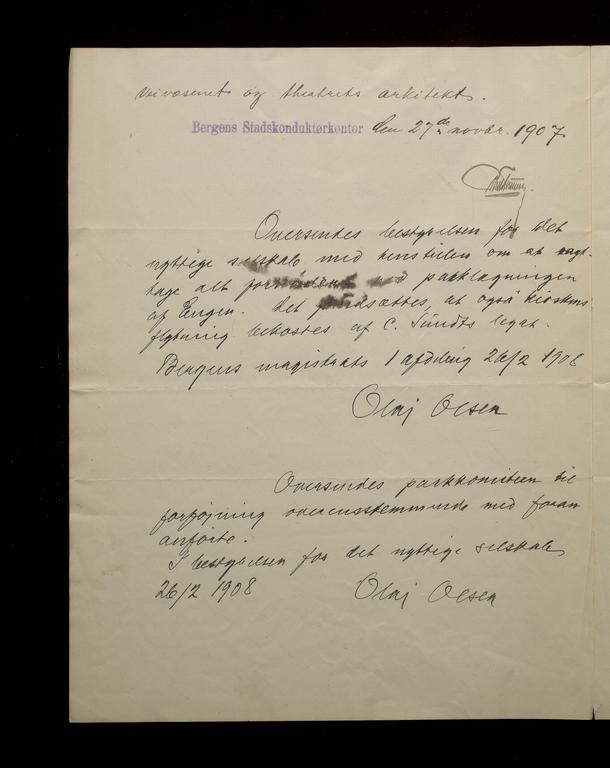 Veivæsenets og theatrets arkitekt.
Bergens Stadskonduktørkontor den 27de novbr. 1907.
Oversendes bestyrelsen for det
nyttige selskab med henstillen om at iagt-
tage alt fornødent ved parklægningen
af Engen. Det forudsættes, at også kioskens
flytning bekostes af C. Sundts legat.
Bergens magistrats 1 afdeling 26/2 1908
Olaj Olsen
Oversendes parkkomiteen til
forføjning overensstemmende med foran
anførte.
I bestyrelsen for det nyttige selskab
26/2 1908 Olaj Olsen